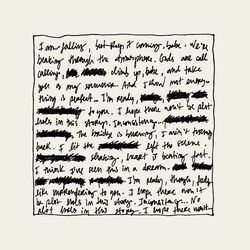 I am falling, but keep it coming, babe. We're
beating through the atmosphere. Gods are call
calling, climb up, babe, and take
you as my souvenir. And I know not every-
thing is perfect. I'm ready,
to you. I hope there won't be plot
holes in this story. Inconsistency
The bridge is burning, I ain't turning
back. I let the left the scene.
shaking, heart is beating fast.
I think I've seen this in a dream,
I'm ready, though, feels
like surrendering to you. I hope there won't
be plot holes in this story. Incongruency. No
plot holes in this story. I hope there won't